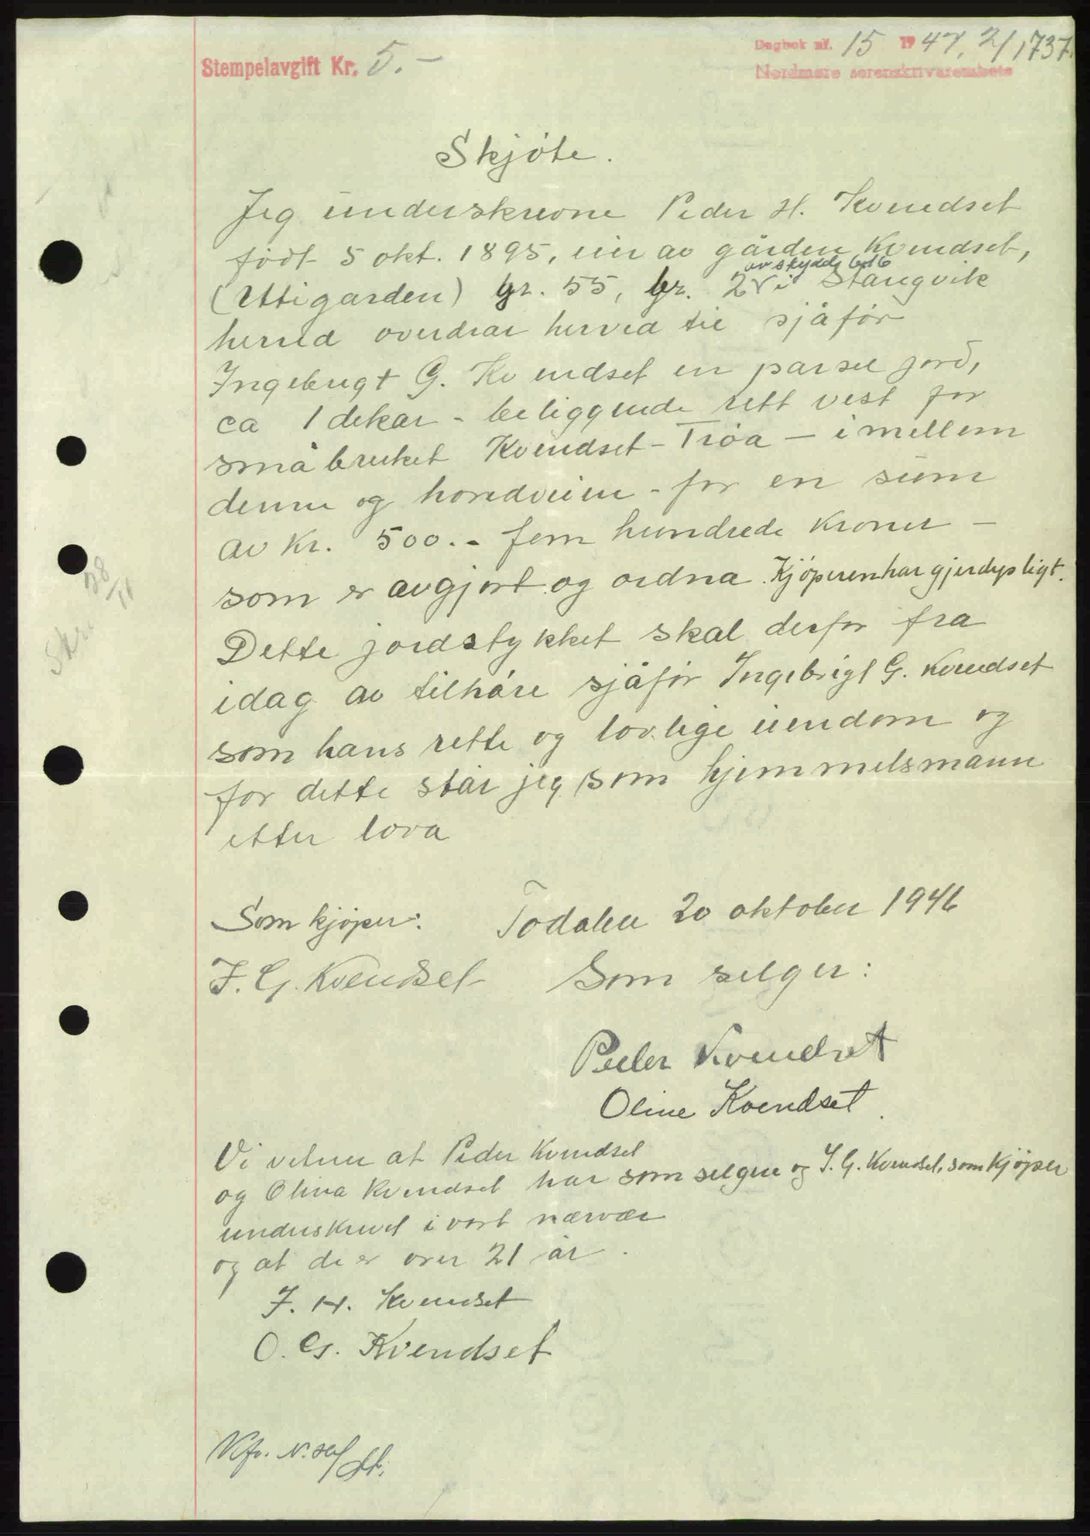 Stempelavgift Kr. 5.-
Dagbok nr. 15 1947, 2/1 1737.
Nordmøre sorenskriverembete
Skjøte.
Jeg underskrevne Peder H. Kvendset
født 5 okt. 1895, eier av gården Kvendset,
av skyld
(Uttigarden) gr. 55, br. 2 i Stangvik
herred overdrar herved til sjåfør
Ingebrigt G. Kvendset en parsel jord,
ca 1 dekar - beliggende rett vest for
småbruket Kvendset-Trøa - imellem
denne og hovedveien - for en sum
av kr. 500.- fem hundrede kroner -
som er avgjort og ordna. Kjøperen har gjerdepligt.
Dette jordstykket skal derfor fra
idag av tilhøre sjåfør Ingebrigt G. Kvendset
som hans rette og lovlige eiendom og
for dette står jeg som hjemmelsmann
etter lova
Som kjøper: Todalen 20 oktober 1946
I. G. Kvendset Som selger:
Peder Kvendset
Oline Kvendset.
Vi vitner at Peder Kvendset
og Olina Kvendset har som selgere og I. G. Kvendset, som kjøper
underskrevet i vort nærvær
og at de er over 21 år.
I. H. Kvendset
O. G. Kvendset
28/11